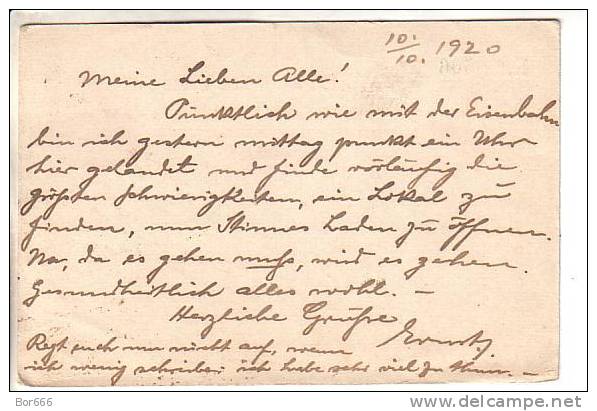 10./10. 1920
Meine Lieben Alle!
Pünktlich wie mit der Eisenbahn
bin ich gestern mittag punkt ein Uhr
hier gelandet und finde vorläufig die
größten Schwierigkeiten, ein Lokal zu
finden, um Stinnes Laden zu öffnen.
Na, da es gehen muss, wird es gehen.
Gesundheitlich alles wohl. –
Herzliche Grüsse
Ernst.
Regt euch nun nicht auf, wenn
ich wenig schreibe; ich habe sehr viel zu thun. –
Bor666
delcampe.net